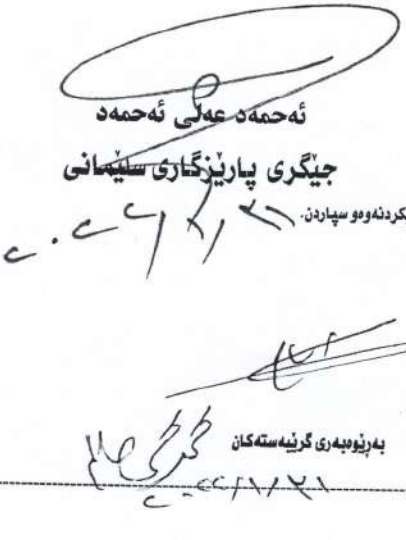 ئەحمەد عەلی ئەحمەد
جێگری پارێزگاری سلێمانی
کردنەوەو سپاردن.
٢٠٢٢/١/٣١
بەرێوەبەری گرێبەستەکان
٢٠٢٢/١/٣١